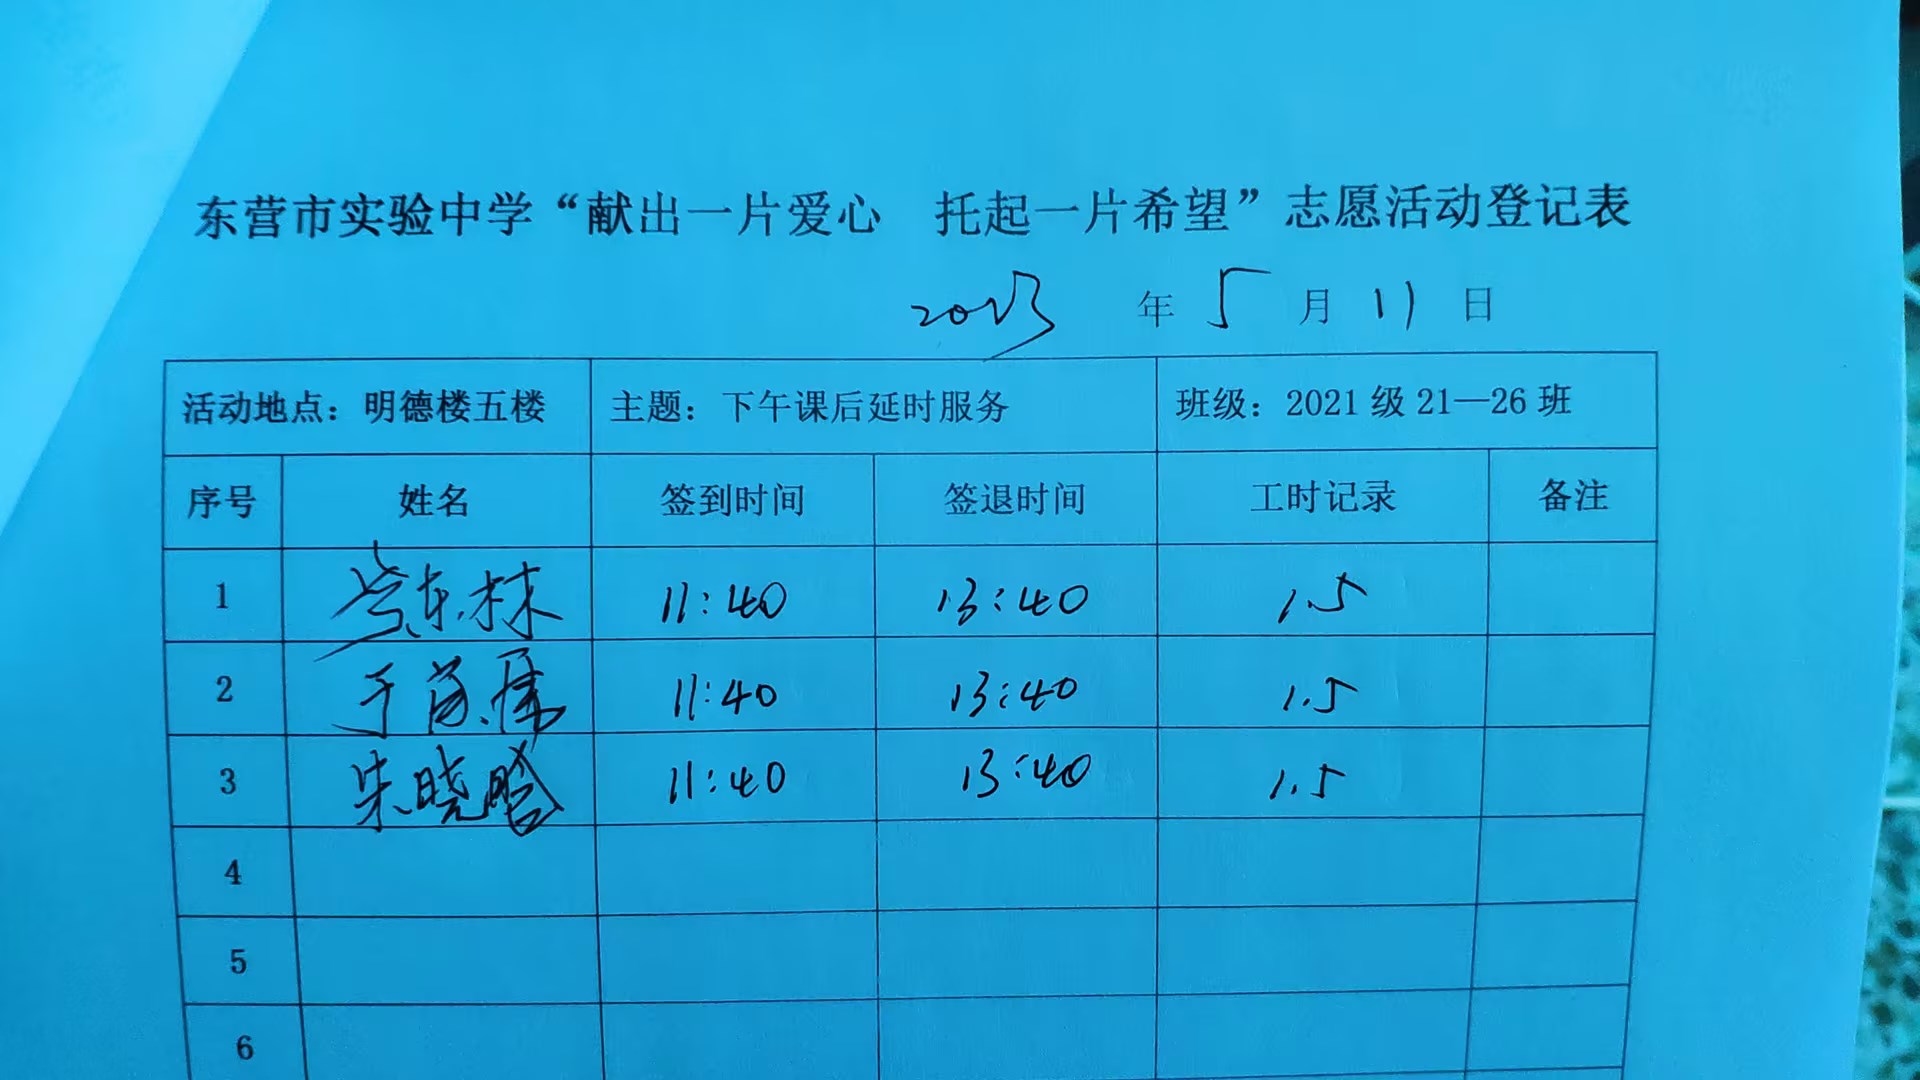 东营市实验中学“献出一片爱心 托起一片希望”志愿活动登记表
2023 年 5 月 11 日
活动地点：明德楼五楼 主题：下午课后延时服务 班级：2021 级 21—26 班
序号 姓名 签到时间 签退时间 工时记录 备注
1 11:40 13:40 1.5
2 于 11:40 13:40 1.5
3 朱晓晗 11:40 13:40 1.5
4
5
6